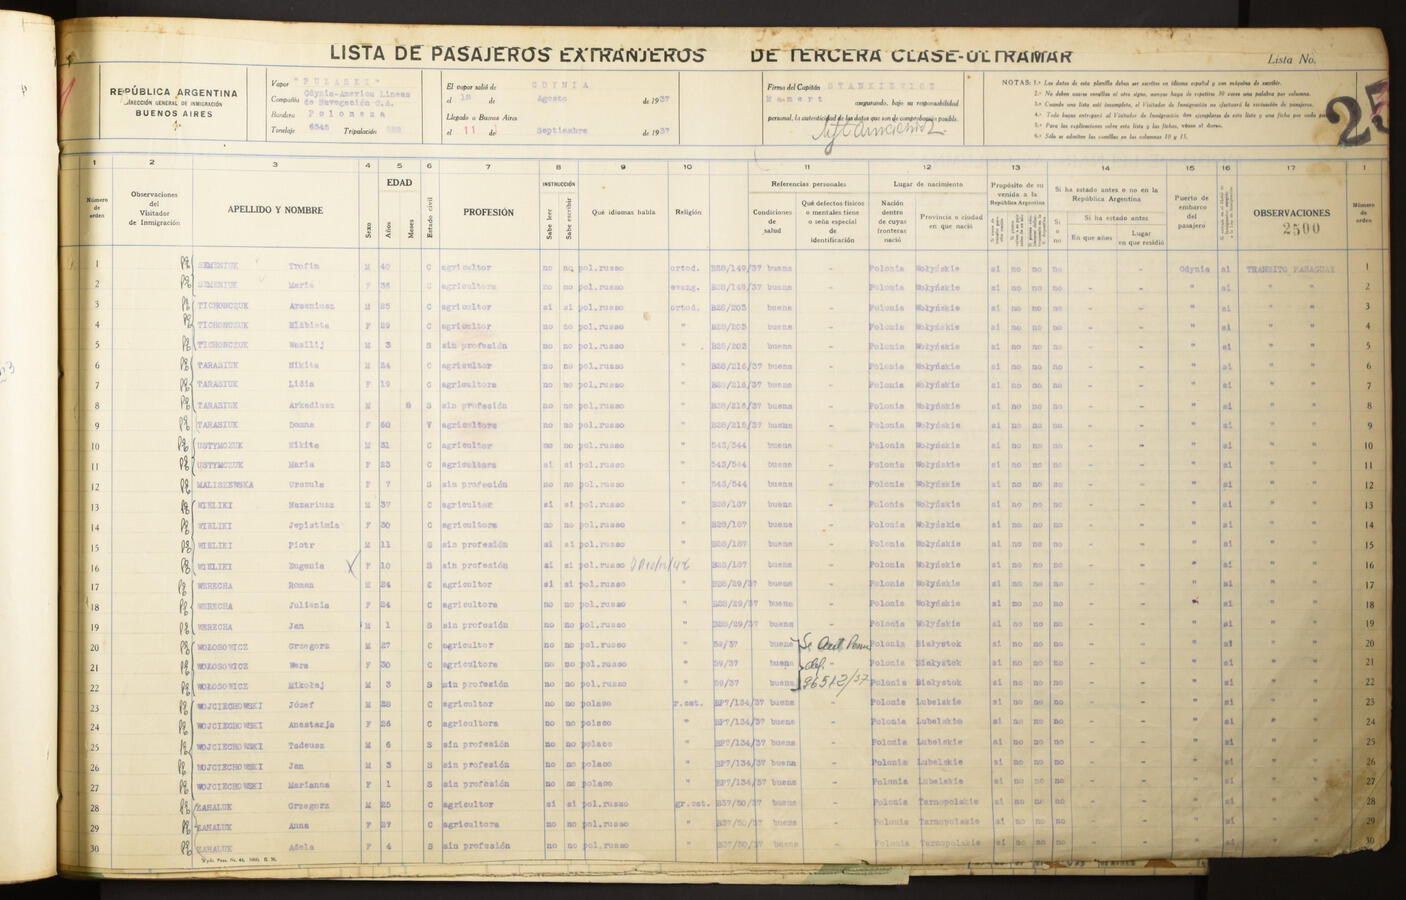 LISTA DE PASAJEROS EXTRANJEROS DE TERCERA CLASE-ULTRAMAR
Lista No.
REPÚBLICA ARGENTINA
DIRECCIÓN GENERAL DE INMIGRACIÓN
BUENOS AIRES
Vapor "PULASKI"
Compañía Gdynia-America Lineas de Navegación C.A.
Bandera Polonesa
Tonelaje 6345 Tripulación
El vapor salió de GDYNIA
el 18 de Agosto de 1937
Llegado a Buenos Aires
el 11 de Septiembre de 1937
Firma del Capitán STANKIEWICZ
asegurando, bajo su responsabilidad
personal, la autenticidad de los datos que son de comprobación posible.
NOTAS: 1.ª Los datos de esta planilla deben ser escritos en idioma español y con máquina de escribir.
25
1 2 3 4 5 6 7 8 9 10 11 12 13 14 15 16 17 1
Número de orden
Observaciones del Visitador de Inmigración
APELLIDO Y NOMBRE
Sexo
EDAD
Años
Meses
Estado civil
PROFESIÓN
INSTRUCCIÓN
Sabe leer
Sabe escribir
Qué idiomas habla
Religión
Referencias personales
Condiciones de salud
Qué defectos físicos o mentales tiene o seña especial de identificación
Lugar de nacimiento
Nación dentro de cuyas fronteras nació
Provincia o ciudad en que nació
Propósito de su venida a la República Argentina
Si ha estado antes o no en la República Argentina
Si o no
Si ha estado antes
En que años
Lugar en que residió
Puerto de embarco del pasajero
OBSERVACIONES
2500
Número de orden
1 SEMENIUK Trofim M 40 C agricultor no no pol.russo ortod. B28/149/37 buena - Polonia Wołyńskie si no no no - - Gdynia si TRANSITO PARAGUAY 1
2 SEMENIUK Maria F 36 C agricultora no no pol.russo evang. B28/149/37 buena - Polonia Wołyńskie si no no no - - " si " " 2
3 TICHONCZUK Arseniusz M 25 C agricultor si si pol.russo ortod. B28/203 buena - Polonia Wołyńskie si no no no - - " si " " 3
4 TICHONCZUK Elżbieta F 29 C agricultor no no pol.russo " B28/203 buena - Polonia Wołyńskie si no no no - - " si " " 4
5 TICHONCZUK Wasilij M 3 S sin profesión no no pol.russo " B28/203 buena - Polonia Wołyńskie si no no no - - " si " " 5
6 TARASIUK Nikita M 24 C agricultor no no pol.russo " B28/216/37 buena - Polonia Wołyńskie si no no no - - " si " " 6
7 TARASIUK Lidia F 19 C agricultora no no pol.russo " B28/216/37 buena - Polonia Wołyńskie si no no no - - " si " " 7
8 TARASIUK Arkadiusz M 8 S sin profesión no no pol.russo " B28/216/37 buena - Polonia Wołyńskie si no no no - - " si " " 8
9 TARASIUK Domna F 60 V agricultora no no pol.russo " B28/215/37 buena - Polonia Wołyńskie si no no no - - " si " " 9
10 USTYMCZUK Nikita M 31 C agricultor no no pol.russo " 543/544 buena - Polonia Wołyńskie si no no no - - " si " " 10
11 USTYMCZUK Maria F 23 C agricultora si si pol.russo " 543/544 buena - Polonia Wołyńskie si no no no - - " si " " 11
12 MALISZEWSKA Urszula F 7 S sin profesión no no pol.russo " 543/544 buena - Polonia Wołyńskie si no no no - - " si " " 12
13 WIELIKI Nazariusz M 37 C agricultor si si pol.russo " B28/187 buena - Polonia Wołyńskie si no no no - - " si " " 13
14 WIELIKI Jepistimia F 30 C agricultora no no pol.russo " B28/187 buena - Polonia Wołyńskie si no no no - - " si " " 14
15 WIELIKI Piotr M 11 S sin profesión si si pol.russo " B28/187 buena - Polonia Wołyńskie si no no no - - " si " " 15
16 WIELIKI Eugenia F 10 S sin profesión si si pol.russo " B28/187 buena - Polonia Wołyńskie si no no no - - " si " " 16
17 WERECHA Roman M 24 C agricultor si si pol.russo " B28/29/37 buena - Polonia Wołyńskie si no no no - - " si " " 17
18 WERECHA Juliania F 24 C agricultora no no pol.russo " B28/29/37 buena - Polonia Wołyńskie si no no no - - " si " " 18
19 WERECHA Jan M 1 S sin profesión no no pol.russo " B28/29/37 buena - Polonia Wołyńskie si no no no - - " si " " 19
20 WOŁOSOWICZ Grzegorz M 27 C agricultor no no pol.russo " 59/37 buena Polonia Białystok si no no no - - " si " " 20
21 WOŁOSOWICZ Wera F 30 C agricultora no no pol.russo " 59/37 buena - Polonia Białystok si no no no - - " si " " 21
22 WOŁOSOWICZ Mikołaj M 3 S sin profesión no no pol.russo " 59/37 buena 96512/37 Polonia Białystok si no no no - - " si " " 22
23 WOJCIECHOWSKI Józef M 28 C agricultor no no polaco r.cat. BP7/134/37 buena - Polonia Lubelskie si no no no - - " si " " 23
24 WOJCIECHOWSKI Anastazja F 26 C agricultora no no polaco " BP7/134/37 buena - Polonia Lubelskie si no no no - - " si " " 24
25 WOJCIECHOWSKI Tadeusz M 6 S sin profesión no no polaco " BP7/134/37 buena - Polonia Lubelskie si no no no - - " si " " 25
26 WOJCIECHOWSKI Jan M 3 S sin profesión no no polaco " BP7/134/37 buena - Polonia Lubelskie si no no no - - " si " " 26
27 WOJCIECHOWSKI Marianna F 1 S sin profesión no no polaco " BP7/134/37 buena - Polonia Lubelskie si no no no - - " si " " 27
28 ZAHALUK Grzegorz M 25 C agricultor si si pol.russo gr.cat. B37/50/37 buena - Polonia Tarnopolskie si no no no - - " si " " 28
29 ZAHALUK Anna F 27 C agricultora no no pol.russo " B37/50/37 buena - Polonia Tarnopolskie si no no no - - " si " " 29
30 ZAHALUK Adela F 4 S sin profesión no no pol.russo " B37/50/37 buena - Polonia Tarnopolskie si no no no - - " si " " 30